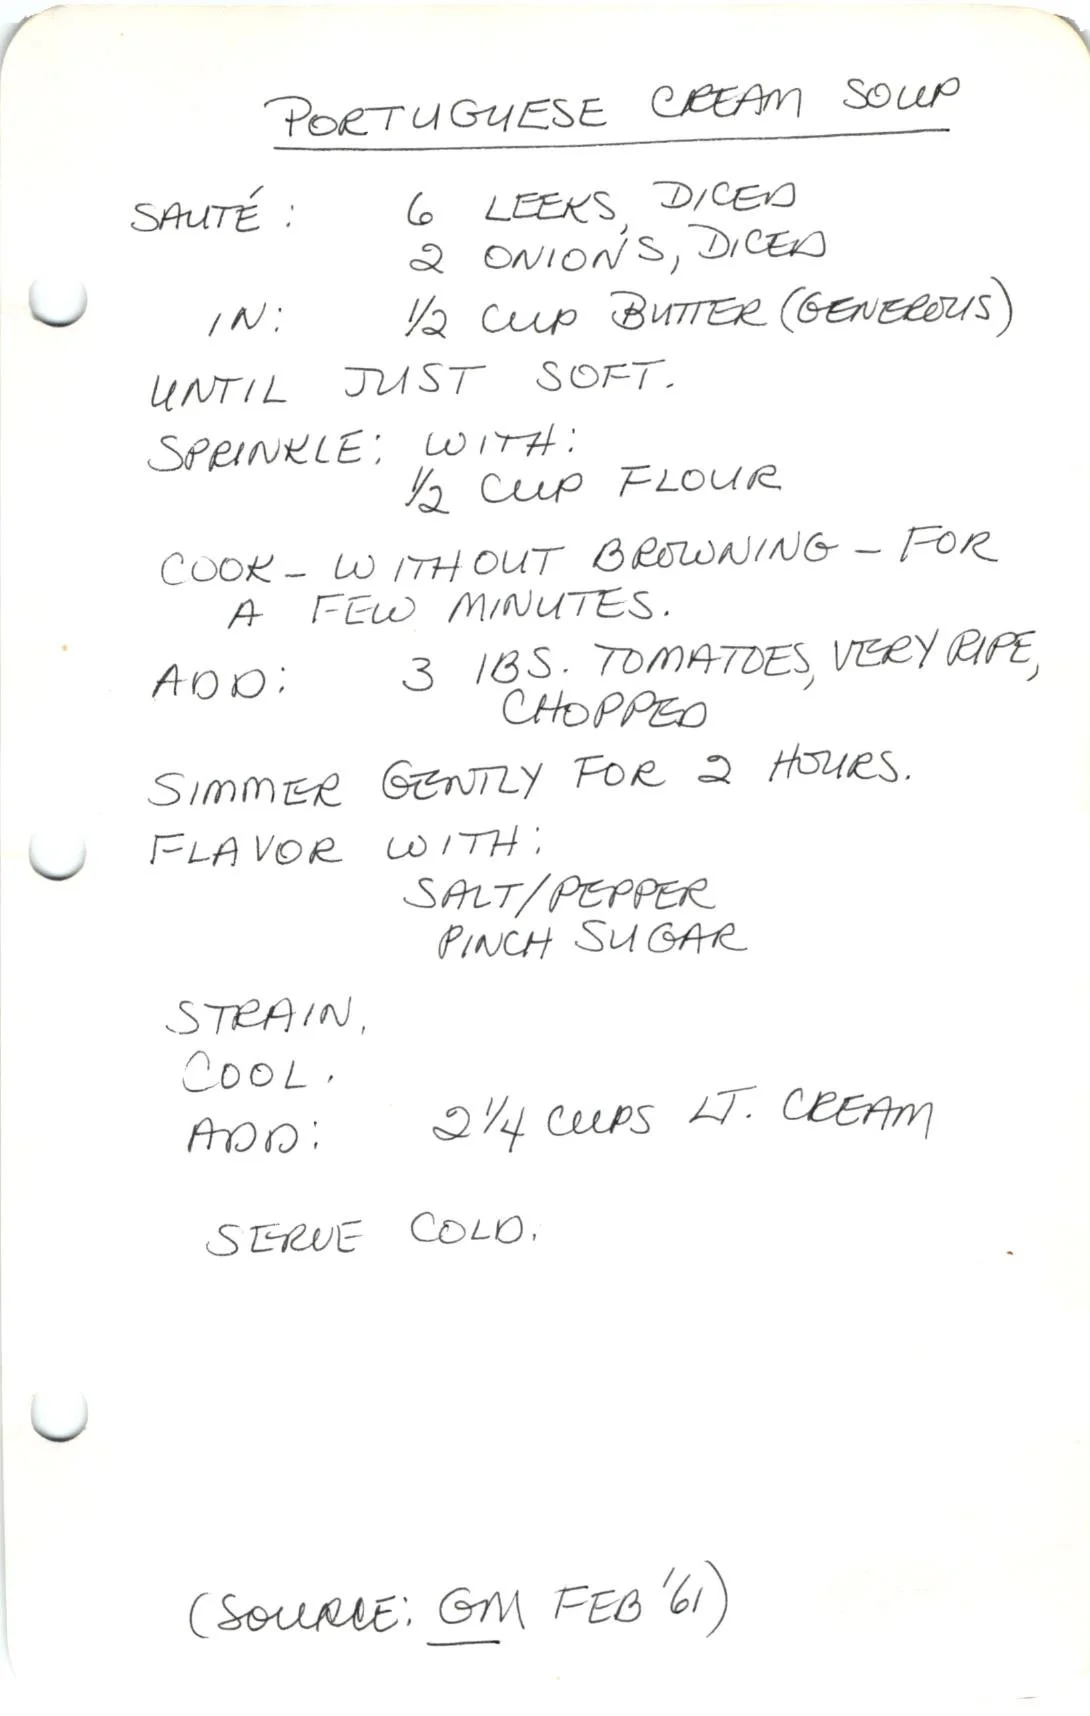 PORTUGUESE CREAM SOUP
SAUTÉ: 6 LEEKS, DICED
2 ONIONS, DICED
IN: 1/2 CUP BUTTER (GENEROUS)
UNTIL JUST SOFT.
SPRINKLE: WITH:
1/2 CUP FLOUR
COOK - WITHOUT BROWNING - FOR
A FEW MINUTES.
ADD: 3 LBS. TOMATOES, VERY RIPE,
CHOPPED
SIMMER GENTLY FOR 2 HOURS.
FLAVOR WITH:
SALT/PEPPER
PINCH SUGAR
STRAIN.
COOL.
ADD: 2 1/4 CUPS LT. CREAM
SERVE COLD.
(SOURCE: GM FEB '61)